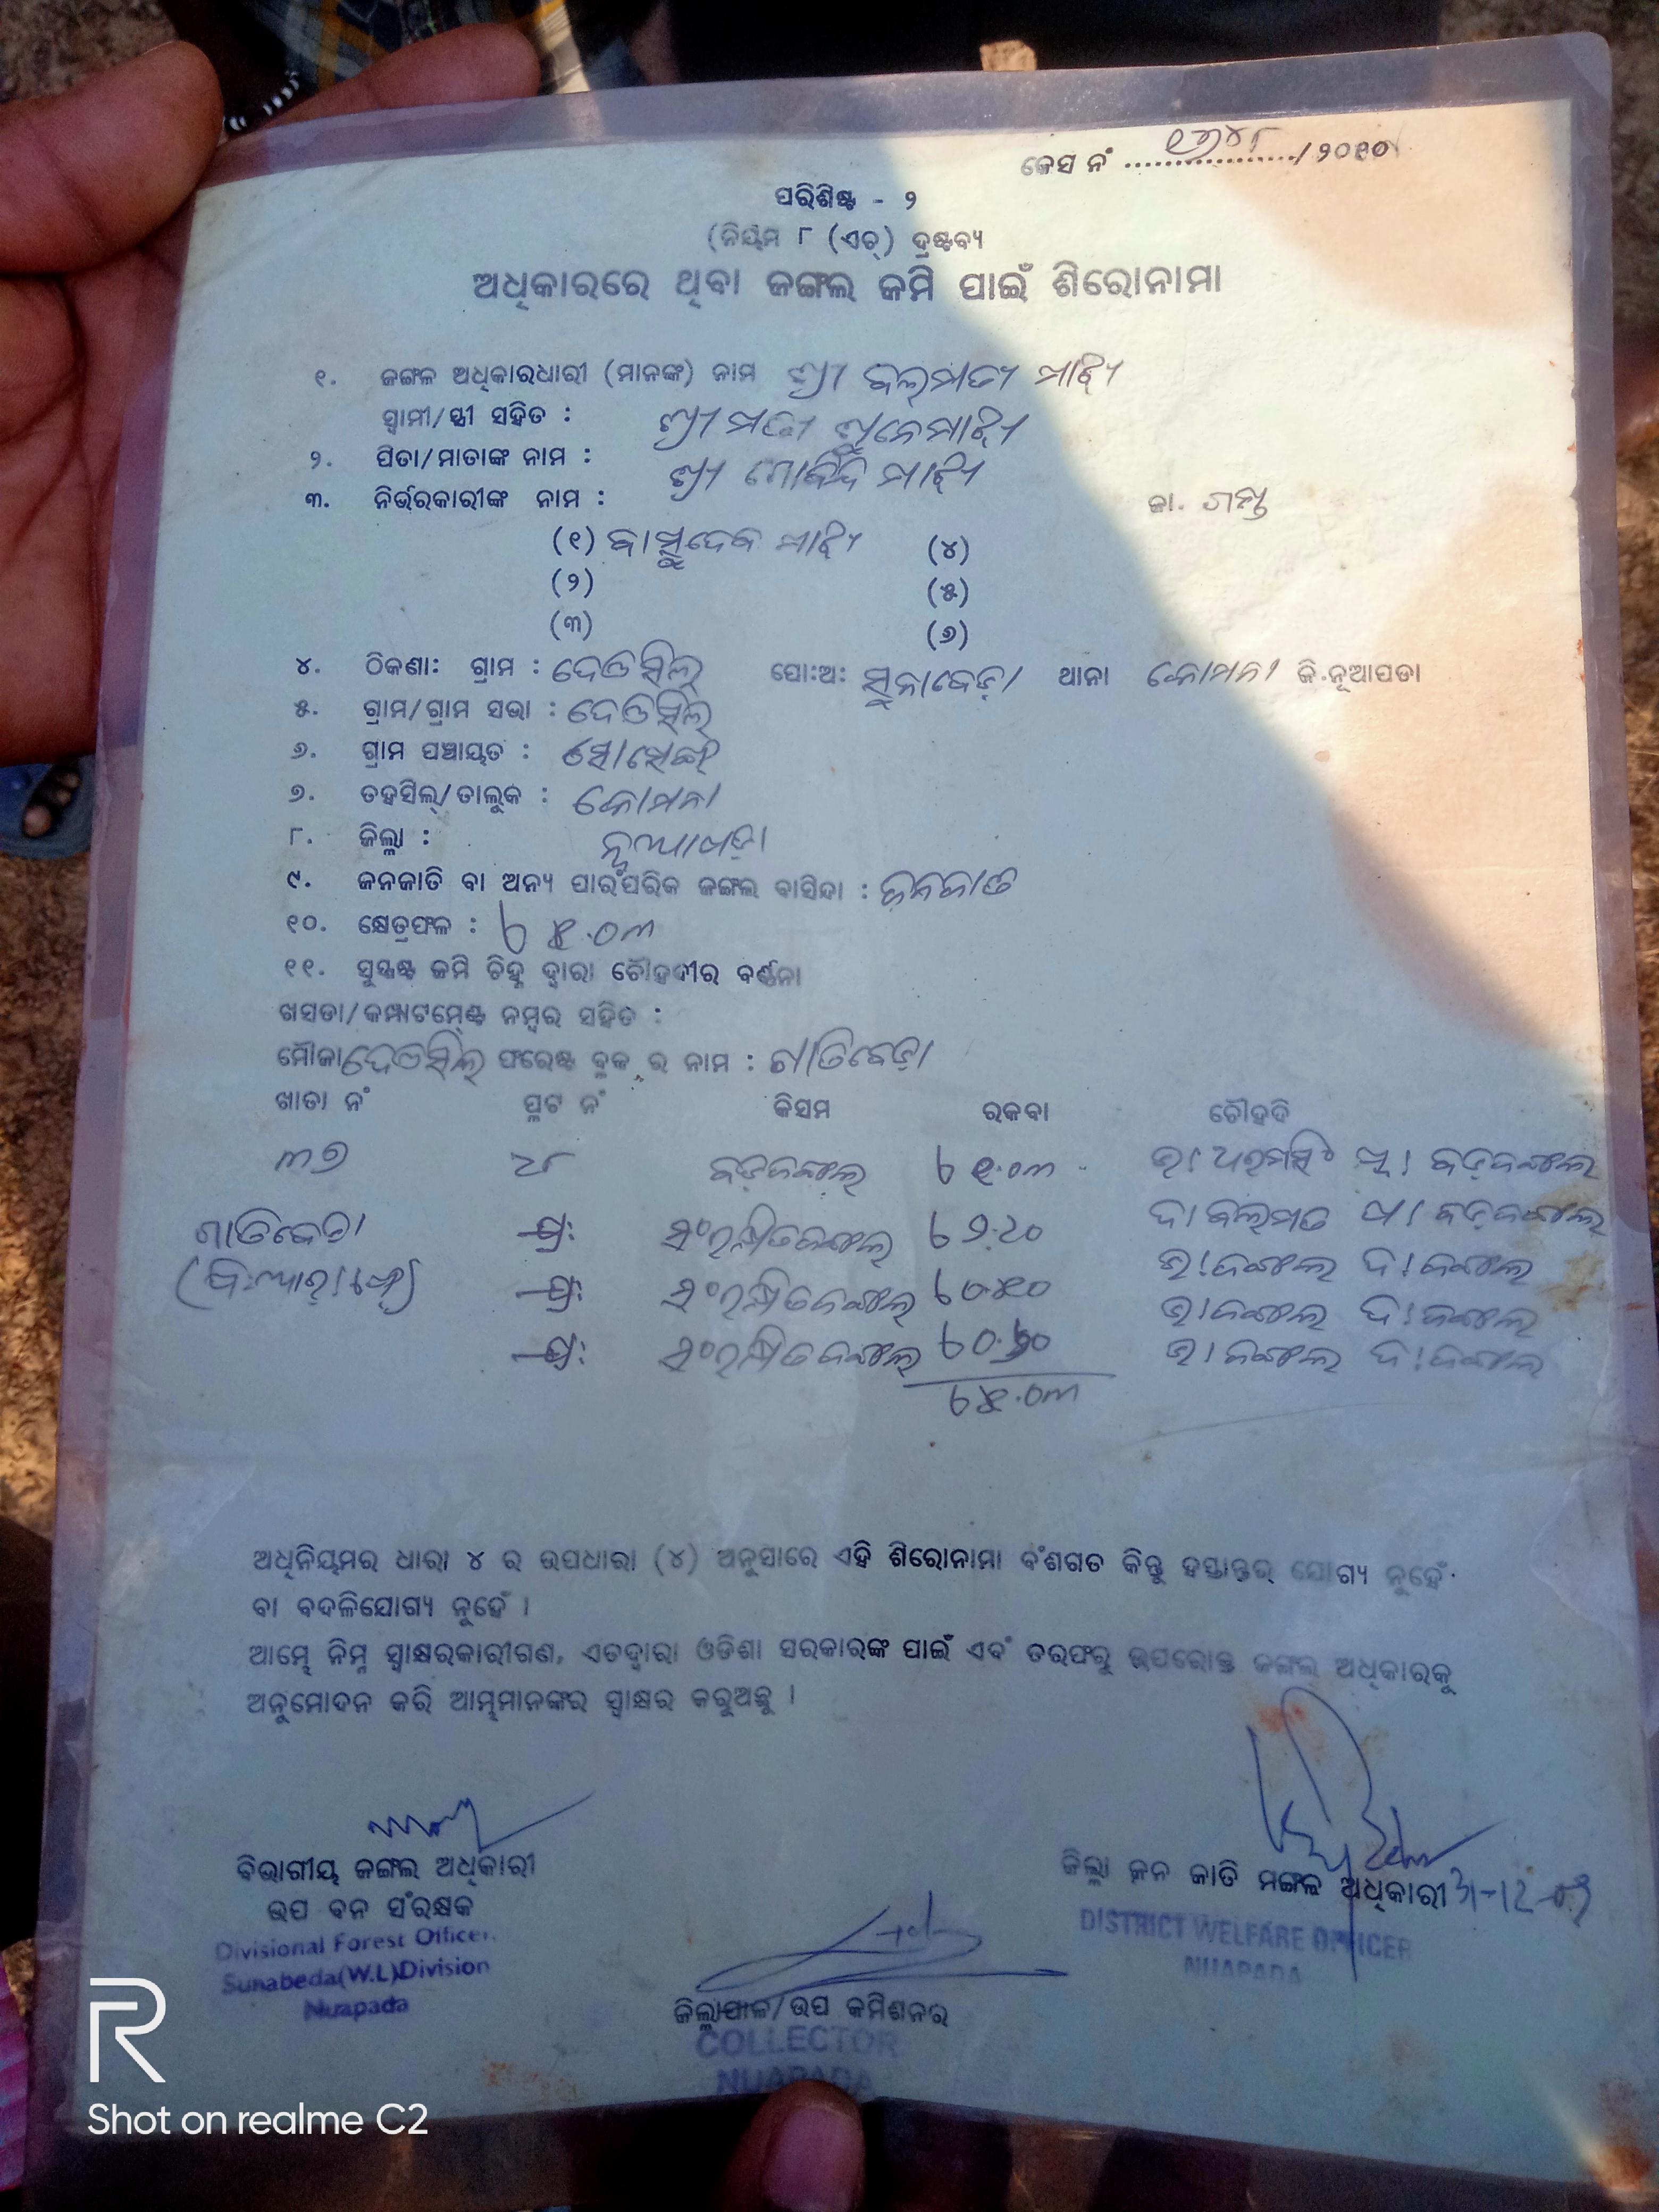 କେସ ନଂ ................./୨୦୧୦
ପରିଶିଷ୍ଟ - ୨
(ନିୟମ ୮ (ଏଚ୍) ଦ୍ରଷ୍ଟବ୍ୟ
ଅଧିକାରରେ ଥିବା ଜଙ୍ଗଲ ଜମି ପାଇଁ ଶିରୋନାମା
୧. ଜଙ୍ଗଳ ଅଧିକାରଧାରୀ (ମାନଙ୍କ) ନାମ ଶ୍ରୀ ବଲ୍ମତୀ ମାଝି
ସ୍ୱାମୀ/ସ୍ତ୍ରୀ ସହିତ : ଶ୍ରୀମତୀ ସୁନେ ମାଝି
୨. ପିତା/ମାତାଙ୍କ ନାମ : ଶ୍ରୀ ଗୋବିନ୍ଦ ମାଝି
୩. ନିର୍ଭରକାରୀଙ୍କ ନାମ : ଜା. ଗଣ୍ଡ
(୧) ବାସୁଦେବ ମାଝି (୪)
(୨) (୫)
(୩) (୬)
୪. ଠିକଣା: ଗ୍ରାମ : ଦେଓସିଲ୍ ପୋ:ଅ: ସୁନାବେଡ଼ା ଥାନା କୋମନା ଜି.ନୂଆପଡା
୫. ଗ୍ରାମ/ଗ୍ରାମ ସଭା : ଦେଓସିଲ୍
୬. ଗ୍ରାମ ପଞ୍ଚାୟତ :
୭. ତହସିଲ୍/ତାଲୁକ : କୋମନା
୮. ଜିଲ୍ଲା : ନୂଆପଡ଼ା
୯. ଜନଜାତି ବା ଅନ୍ୟ ପାରଂପରିକ ଜଙ୍ଗଲ ବାସିନ୍ଦା : ଜନଜାତି
୧୦. କ୍ଷେତ୍ରଫଳ : ୫.୦୩
୧୧. ସୁସ୍ପଷ୍ଟ ଜମି ଚିହ୍ନ ଦ୍ୱାରା ଚୌହଦୀର ବର୍ଣ୍ଣନା
ଖସଡା/କମ୍ପାଟମେଣ୍ଟ ନମ୍ବର ସହିତ :
ମୌଜା ଦେଓସିଲ୍ ଫରେଷ୍ଟ ବ୍ଲକ ର ନାମ : ଗାତିବେଡ଼ା
ଖାତା ନଂ ପ୍ଲଟ ନଂ କିସମ ରକବା ଚୌହଦି
୩୭ ୪୮ ବଡ଼ଜଙ୍ଗଲ ୧.୦୩ ଉ। ଧରମସିଂ ପୂ। ବଡ଼ଜଙ୍ଗଲ
ଗାତିବେଡ଼ା ସଂରକ୍ଷିତଜଙ୍ଗଲ ଦ। ବଲ୍ମତ ପ। ବଡ଼ଜଙ୍ଗଲ
ସଂରକ୍ଷିତଜଙ୍ଗଲ ଉ।ଜଙ୍ଗଲ ଦ।ଜଙ୍ଗଲ
ଉ।ଜଙ୍ଗଲ ଦ।ଜଙ୍ଗଲ
ସଂରକ୍ଷିତଜଙ୍ଗଲ ଉ।ଜଙ୍ଗଲ ଦ।ଜଙ୍ଗଲ
୫.୦୩
ଅଧିନିୟମର ଧାରା ୪ ର ଉପଧାରା (୪) ଅନୁସାରେ ଏହି ଶିରୋନାମା ବଂଶଗତ କିନ୍ତୁ ହସ୍ତାନ୍ତର୍ ଯୋଗ୍ୟ ନୁହେଁ.
ବା ବଦଳିଯୋଗ୍ୟ ନୁହେଁ ।
ଆମ୍ଭେ ନିମ୍ନ ସ୍ୱାକ୍ଷରକାରୀଗଣ, ଏତଦ୍ୱାରା ଓଡିଶା ସରକାରଙ୍କ ପାଇଁ ଏବଂ ତରଫରୁ ଉପରୋକ୍ତ ଜଙ୍ଗଲ ଅଧିକାରକୁ
ଅନୁମୋଦନ କରି ଆମ୍ଭମାନଙ୍କର ସ୍ୱାକ୍ଷର କରୁଅଛୁ ।
ବିଭାଗୀୟ ଜଙ୍ଗଲ ଅଧିକାରୀ
ଉପ ବନ ସଂରକ୍ଷକ
Divisional Forest Officer.
Sunabeda(W.L)Division
Nuapada
ଜିଲ୍ଲା ଜନ ଜାତି ମଙ୍ଗଳ ଅଧିକାରୀ
DISTRICT WELFARE OFFICER
NUAPADA
ଜିଲ୍ଲାପାଳ/ଉପ କମିଶନର
COLLECTOR
NUAPADA
R
Shot on realme C2